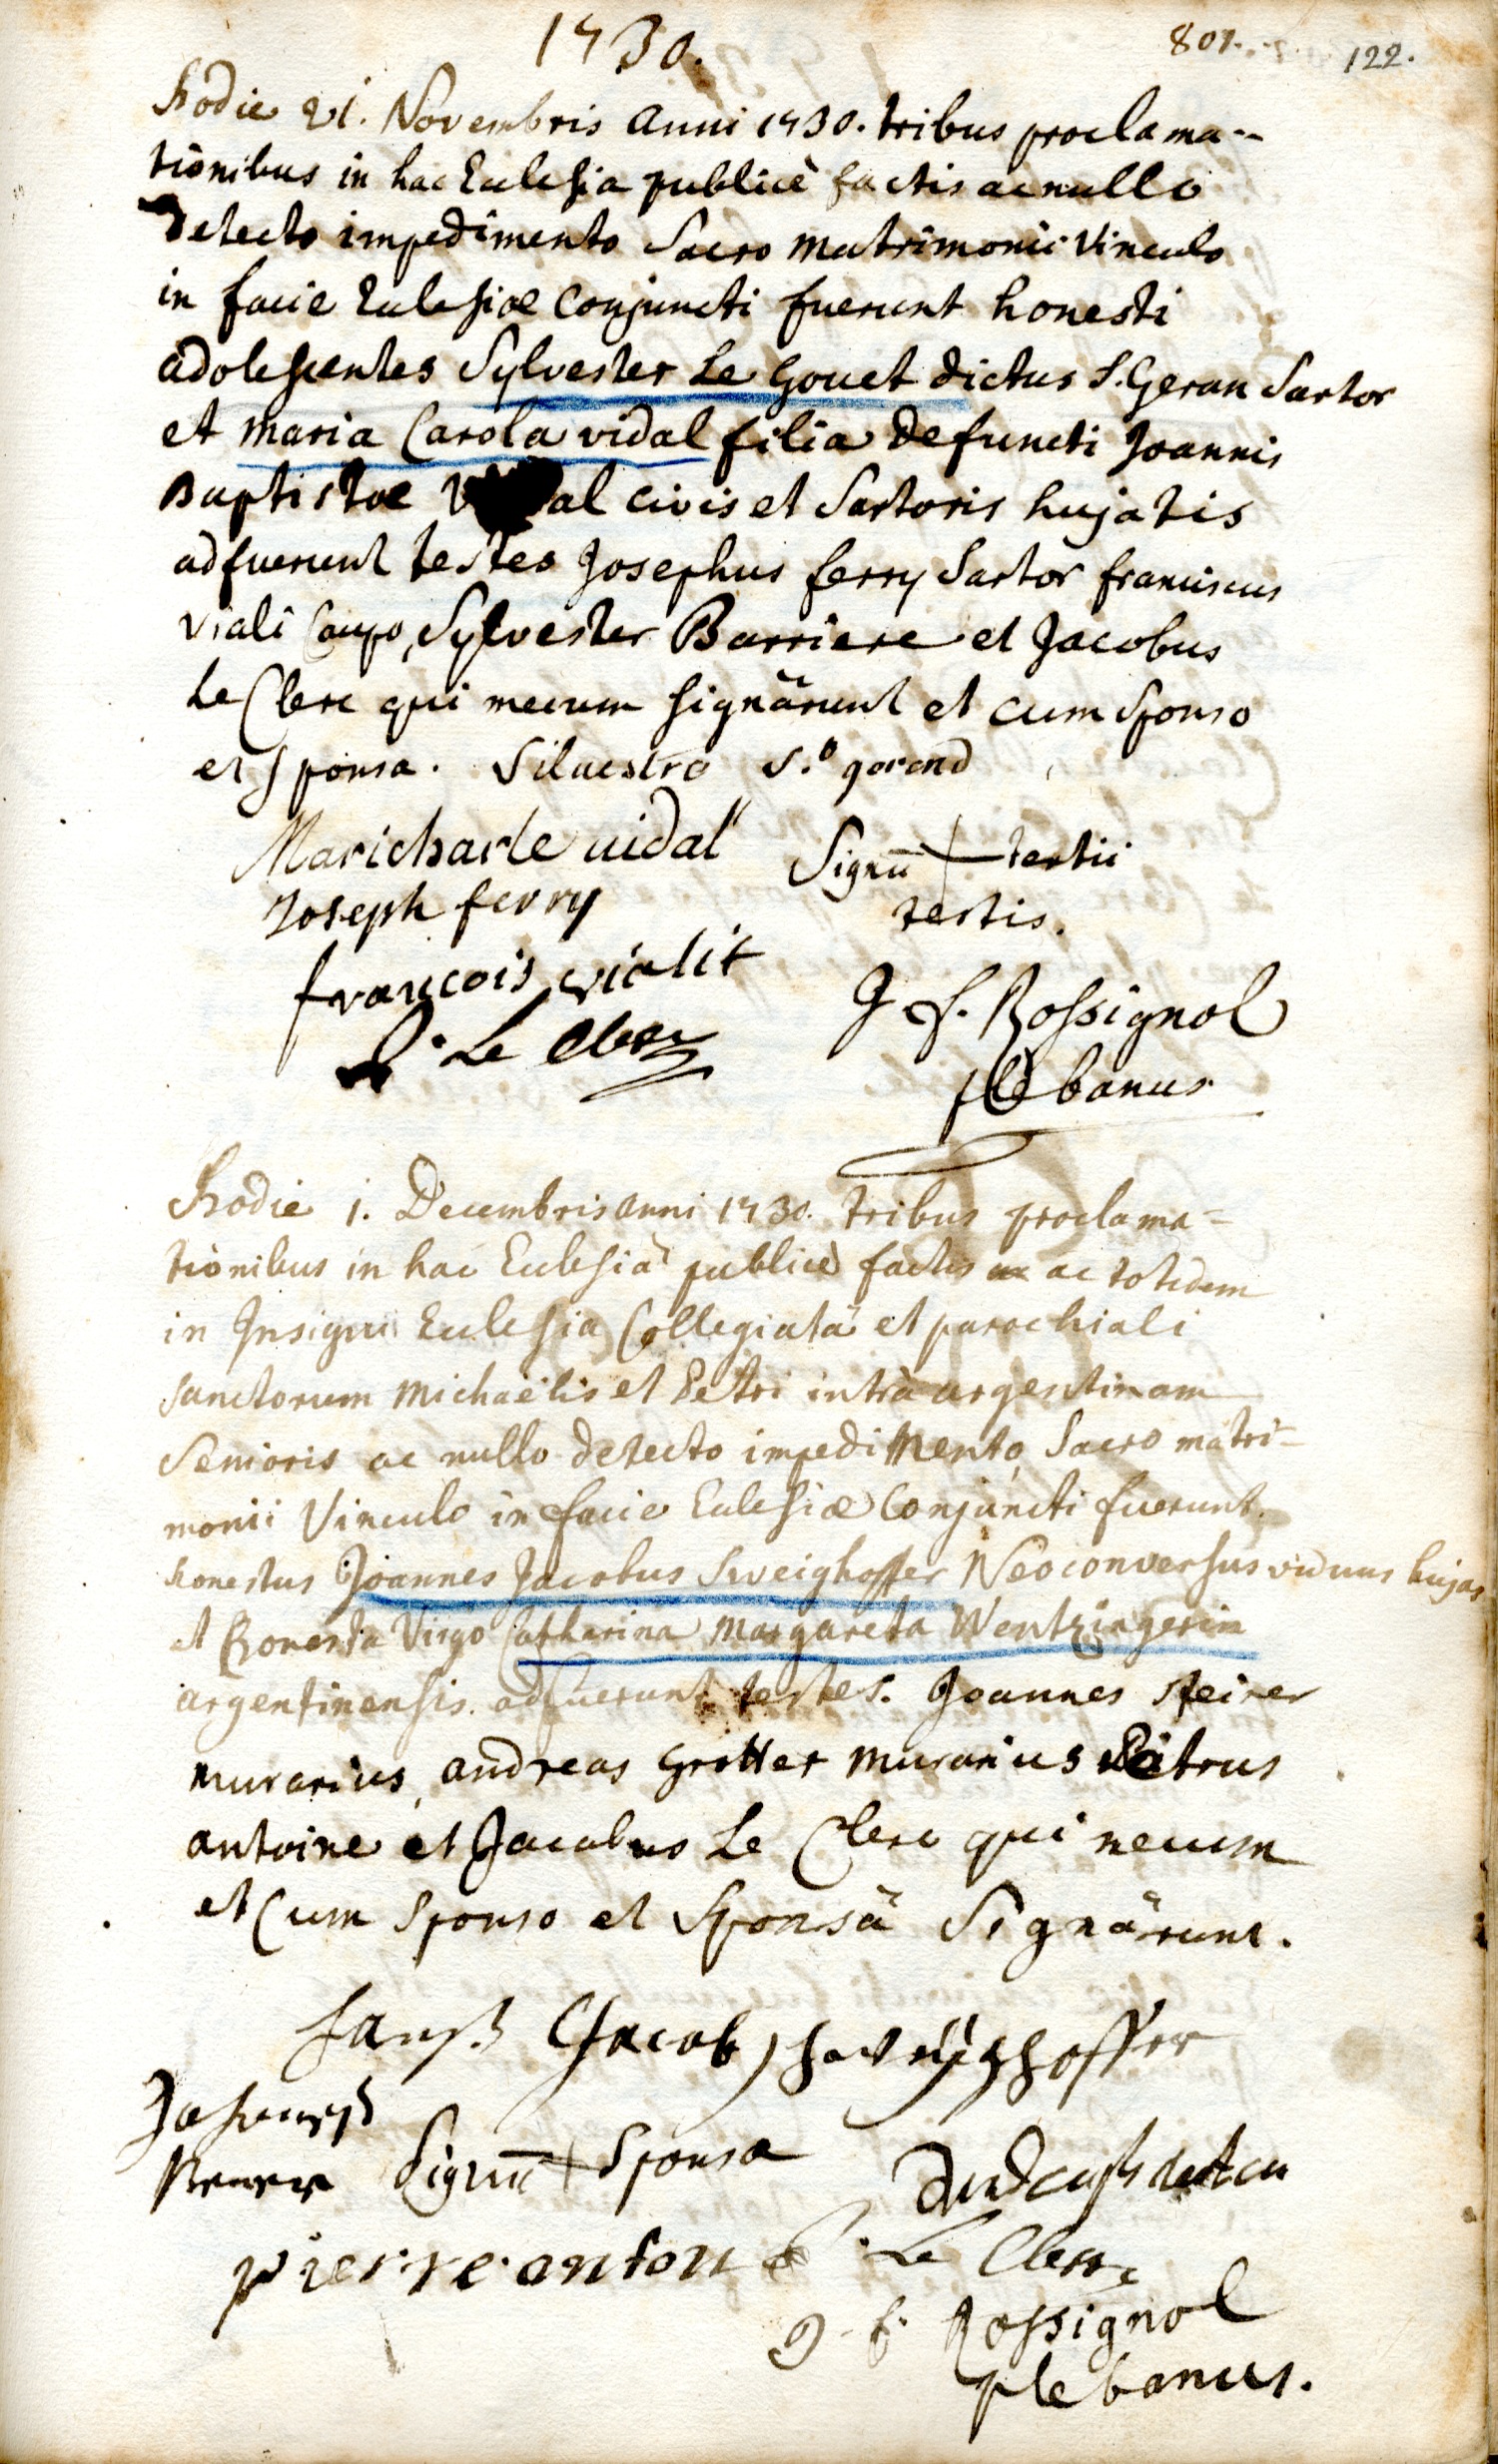 1730.
801.
122.
Hodie 21. Novembris anni 1730. tribus proclama-
tionibus in hac Ecclesia publicè factis ac nullo
detecto impedimento Sacro Matrimonii Vinculo
in facie Ecclesiæ Conjuncti fuerunt honesti
adolescentes Sylvester Le Gouet dictus S. Geran Sartor
et Maria Carola vidal filia defuncti Joannis
Baptistæ V al civis et Sartoris hujatis
adfuerunt testes Josephus ferry Sartor franciscus
viali Caupo, Sylvester Barriere et Jacobus
Le Clerc qui mecum signârunt et cum Sponso
et Sponsa. Siluestre S.t gerand
Maricharle uidal
Signū + tertii
testis.
Joseph ferry
françois vialit
J. Le Clerc
J. F. Rossignol
plebanus
Hodie 1. Decembris anni 1730. tribus proclama-
tionibus in hac Ecclesiâ publicè factis ac totidem
in Insigni Ecclesia Collegiatâ et parochiali
sanctorum Michaëlis et Petri intrà argentinam
Senioris ac nullo detecto impedimento Sacro matri-
monii Vinculo in facie Ecclesiæ Conjuncti fuerunt
honestus Joannes Jacobus Sweighoffer Neoconversus viduus hujas
et Honesta Virgo Catharina Margareta Wentzingerin
argentinensis. adfuerunt testes. Joannes Steiner
murarius, andreas Grotter murarius Petrus
antoine et Jacobus Le Clerc qui mecum
et Cum Sponso et Sponsâ Signârunt.
Hanß Jacob Schweyghoffer
Johannes
Signū + Sponsa
pierre anton
J. Le Clerc
J. F. Rossignol
plebanus.